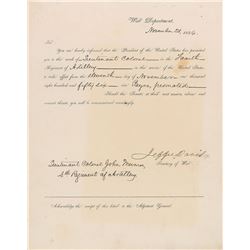 War Department,
November 24, 1856.
Sir:
You are hereby informed that the President of the United States has promoted
you to the rank of Lieutenant Colonel in the Fourth
Regiment of Artillery in the service of the United States
to take effect from the eleventh day of November one thousand
eight hundred and fifty six
Should the Senate, at their next session, advise and
consent thereto, you will be commissioned accordingly.
Jeffn Davis
Secretary of War.
Lieutenant Colonel John Munroe
4th Regiment of Artillery
Acknowledge the receipt of this letter to the Adjutant General.